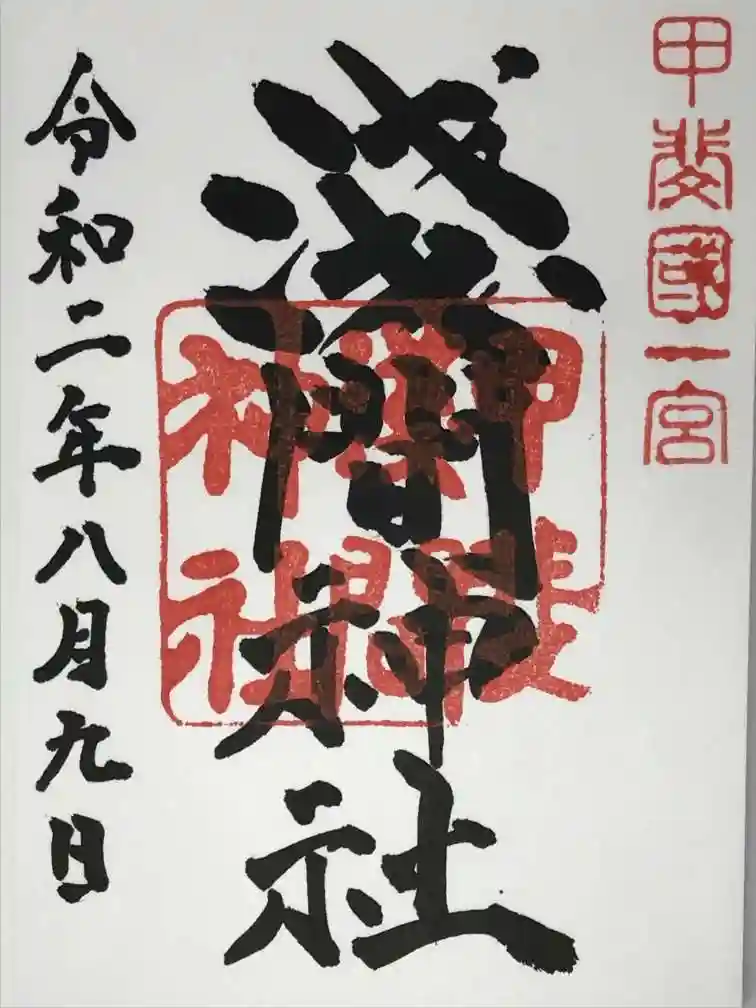 甲斐國一宮
淺間神社
甲斐
間
神社
令和二年八月九日